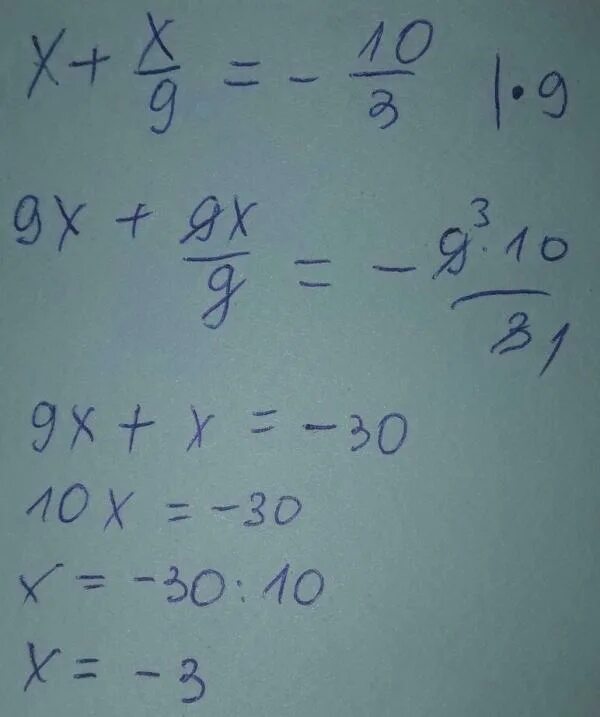 x + x/9 = - 10/3 | · 9
9x + 9x/9 = - 9³ · 10 / 31
9x + x = -30
10x = -30
x = -30 : 10
x = -3